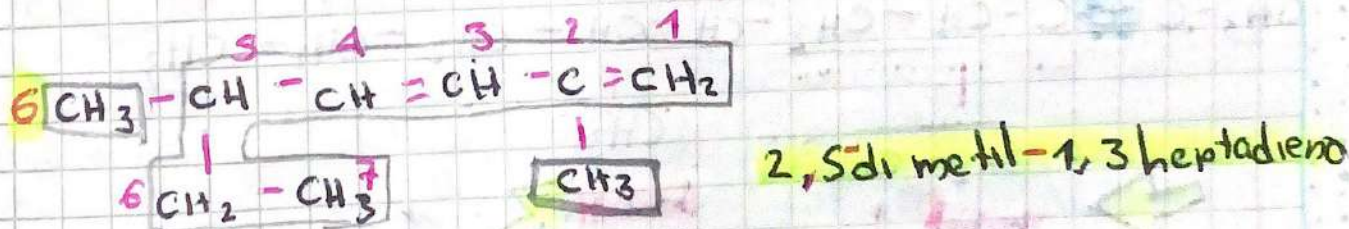 5 4 3 2 1
6 CH3 - CH - CH = CH - C = CH2
6 CH2 - CH3 7 CH3
2,5di metil-1,3 heptadieno